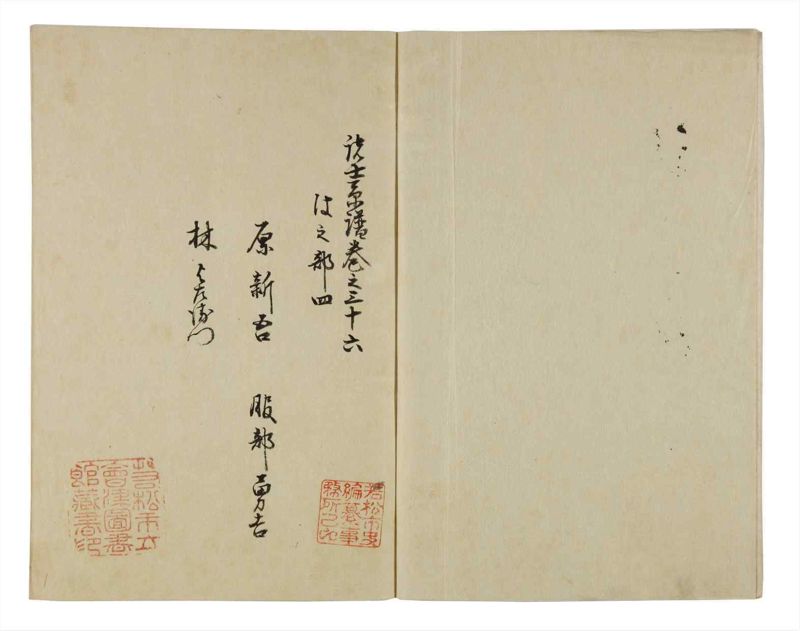 諸士系譜巻之三十六
は之部四
原新吾　服部勇吉
林与左衛門
若松市史
編纂事
務所之印
若松市立
會津圖書
館藏書印